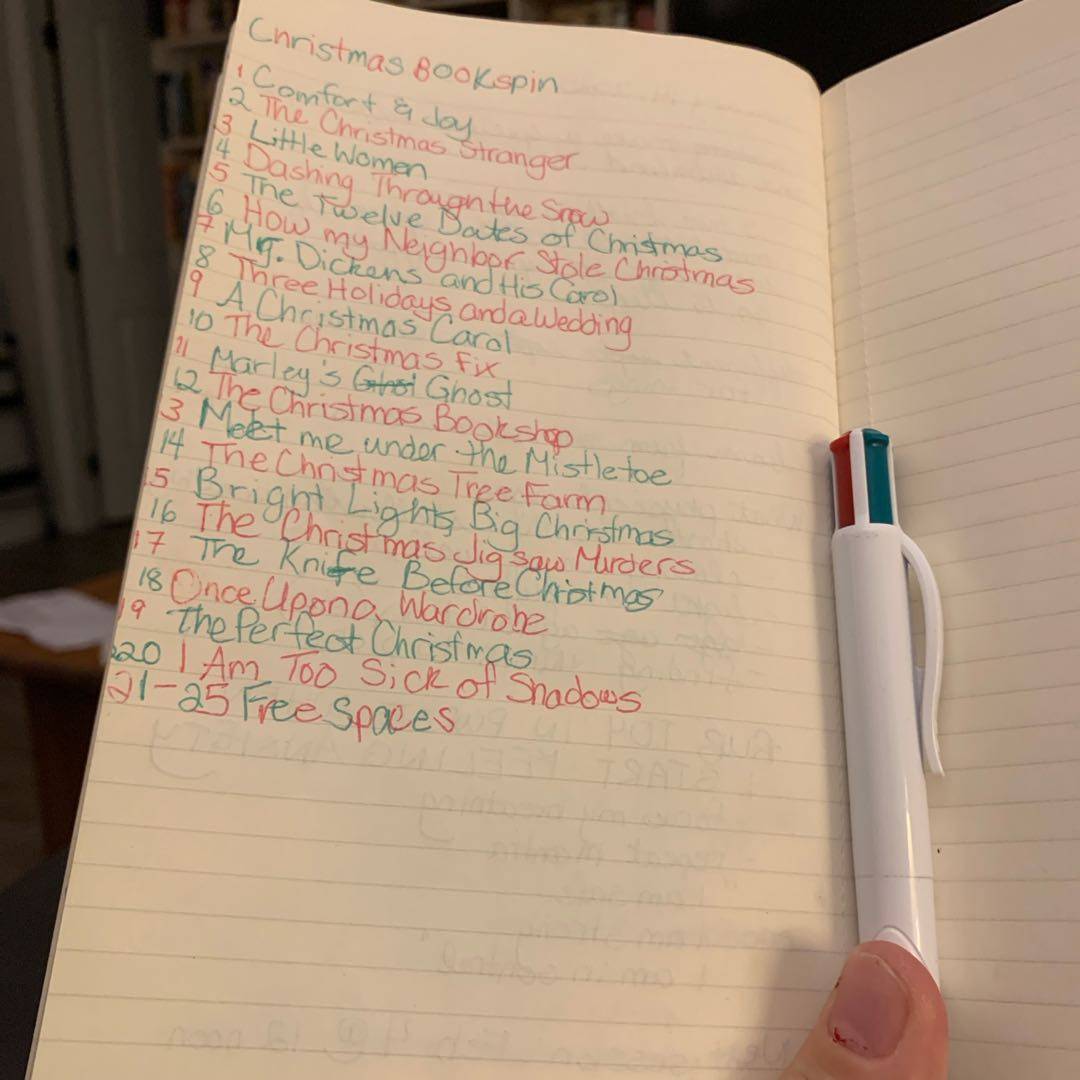 Christmas Bookspin
1 Comfort & Joy
2 The Christmas Stranger
3 Little Women
4 Dashing Through the Snow
5 The Twelve Dates of Christmas
6 How my Neighbor Stole Christmas
7 Mr. Dickens and His Carol
8 Three Holidays and a Wedding
9 A Christmas Carol
10 The Christmas Fix
11 Marley's Ghost
12 The Christmas Bookshop
3 Meet me under the Mistletoe
14 The Christmas Tree Farm
15 Bright Lights Big Christmas
16 The Christmas Jigsaw Murders
17 The Knife Before Christmas
18 Once Upon a Wardrobe
19 The Perfect Christmas
20 I Am Too Sick of Shadows
21-25 Free Spaces